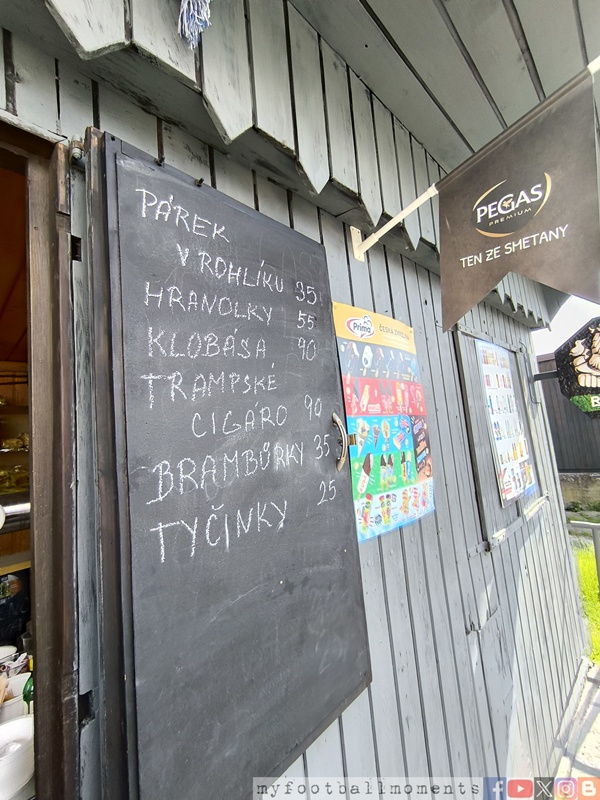 PÁREK
V ROHLÍKU 35
HRANOLKY 55
KLOBÁSA 90
TRAMPSKÉ
CIGARO 90
BRAMBŮRKY 35
TYČINKY 25
PEGAS
PREMIUM
TEN ZE SMETANY
Prima
ČESKÁ ZMRZLINA
myfootballmoments